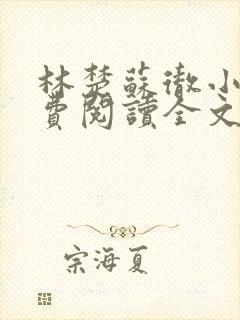 林楚蘇徹小
費閱讀全文
宗海夏